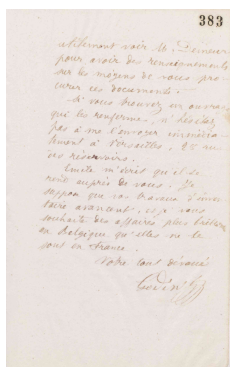 383
utilement voir M. Deineur
pour avoir des renseignements
sur les moyens de vous pro-
curer ces documents.
Si vous trouvez un ouvrage
qui les renferme, n'hésitez
pas à me l'envoyer immédia-
tement à Versailles, 25 rue
des réservoirs.
Emile m'écrit qu'il se
rend auprès de vous. Je
suppose que vos travaux d'inven
taire avancent, et je vous
souhaite des affaires plus
en Belgique qu'elles ne le
sont en France.
Votre tout dévoué
Godin